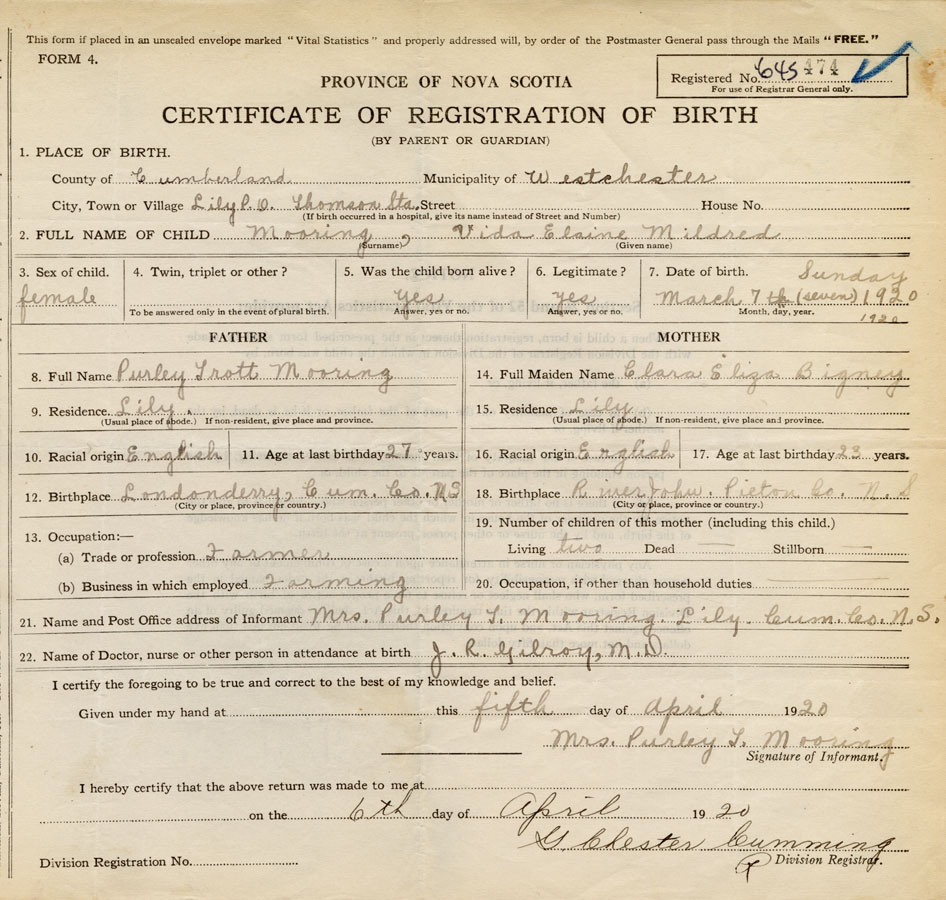 This form if placed in an unsealed envelope marked "Vital Statistics" and properly addressed will, by order of the Postmaster General pass through the Mails "FREE."
FORM 4.
Registered No. 645 474
For use of Registrar General only.
PROVINCE OF NOVA SCOTIA
CERTIFICATE OF REGISTRATION OF BIRTH
(BY PARENT OR GUARDIAN)
1. PLACE OF BIRTH.
County of Cumberland Municipality of Westchester
City, Town or Village Lily P.O. Thomson Sta. Street House No.
(If birth occurred in a hospital, give its name instead of Street and Number)
2. FULL NAME OF CHILD Mooring, Vida Elaine Mildred
(Surname) (Given name)
3. Sex of child. 4. Twin, triplet or other? 5. Was the child born alive? 6. Legitimate? 7. Date of birth. Sunday
female yes yes March 7th (seven) 1920
To be answered only in the event of plural birth. Answer, yes or no. Answer, yes or no. Month, day, year. 1920
FATHER MOTHER
8. Full Name Purley Trott Mooring 14. Full Maiden Name Clara Eliza Bigney
9. Residence Lily. 15. Residence Lily
(Usual place of abode.) If non-resident, give place and province. (Usual place of abode.) If non-resident, give place and province.
10. Racial origin English 11. Age at last birthday 27 years. 16. Racial origin English 17. Age at last birthday 23 years.
12. Birthplace Londonderry, Cum. Co. N.S 18. Birthplace River John. Picton Co. N.S
(City or place, province or country.) (City or place, province or country.)
13. Occupation:— 19. Number of children of this mother (including this child.)
(a) Trade or profession Farmer Living two Dead — Stillborn —
(b) Business in which employed Farming 20. Occupation, if other than household duties —
21. Name and Post Office address of Informant Mrs. Purley T. Mooring. Lily. Cum. Co. N.S.
22. Name of Doctor, nurse or other person in attendance at birth J. R. Gilroy, M.D.
I certify the foregoing to be true and correct to the best of my knowledge and belief.
Given under my hand at this fifth day of April 1920
Mrs. Purley T. Mooring
Signature of Informant.
I hereby certify that the above return was made to me at
on the 6th day of April 1920
G. Chester Cumming
Division Registration No. Division Registrar.